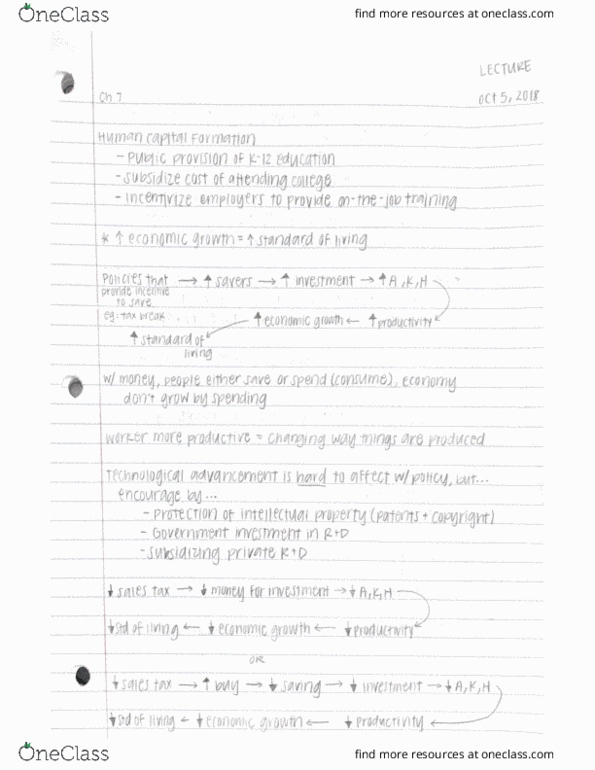 OneClass find more resources at oneclass.com
LECTURE
Ch 7 Oct 5, 2018
Human Capital Formation
- Public provision of K-12 education
- Subsidize cost of attending college
- Incentivize employers to provide on-the-job training
* ↑ economic growth = ↑ standard of living
Policies that → ↑ savers → ↑ investment → ↑ A, K, H
provide incentive
to save
eg: tax break ↑ economic growth ← ↑ productivity
↑ standard of
living
w/ money, people either save or spend (consume), economy
don't grow by spending
worker more productive = changing way things are produced
Technological advancement is hard to affect w/ policy, but...
encourage by...
- Protection of intellectual property (patents + copyright)
- Government investment in R+D
- Subsidizing private R+D
↓ sales tax → ↓ money for investment → ↓ A, K, H
↓ std of living ← ↓ economic growth ← ↓ productivity
OR
↓ sales tax → ↑ buy → ↓ saving → ↓ investment → ↓ A, K, H
↓ std of living ← ↓ economic growth ← ↓ productivity
OneClass find more resources at oneclass.com